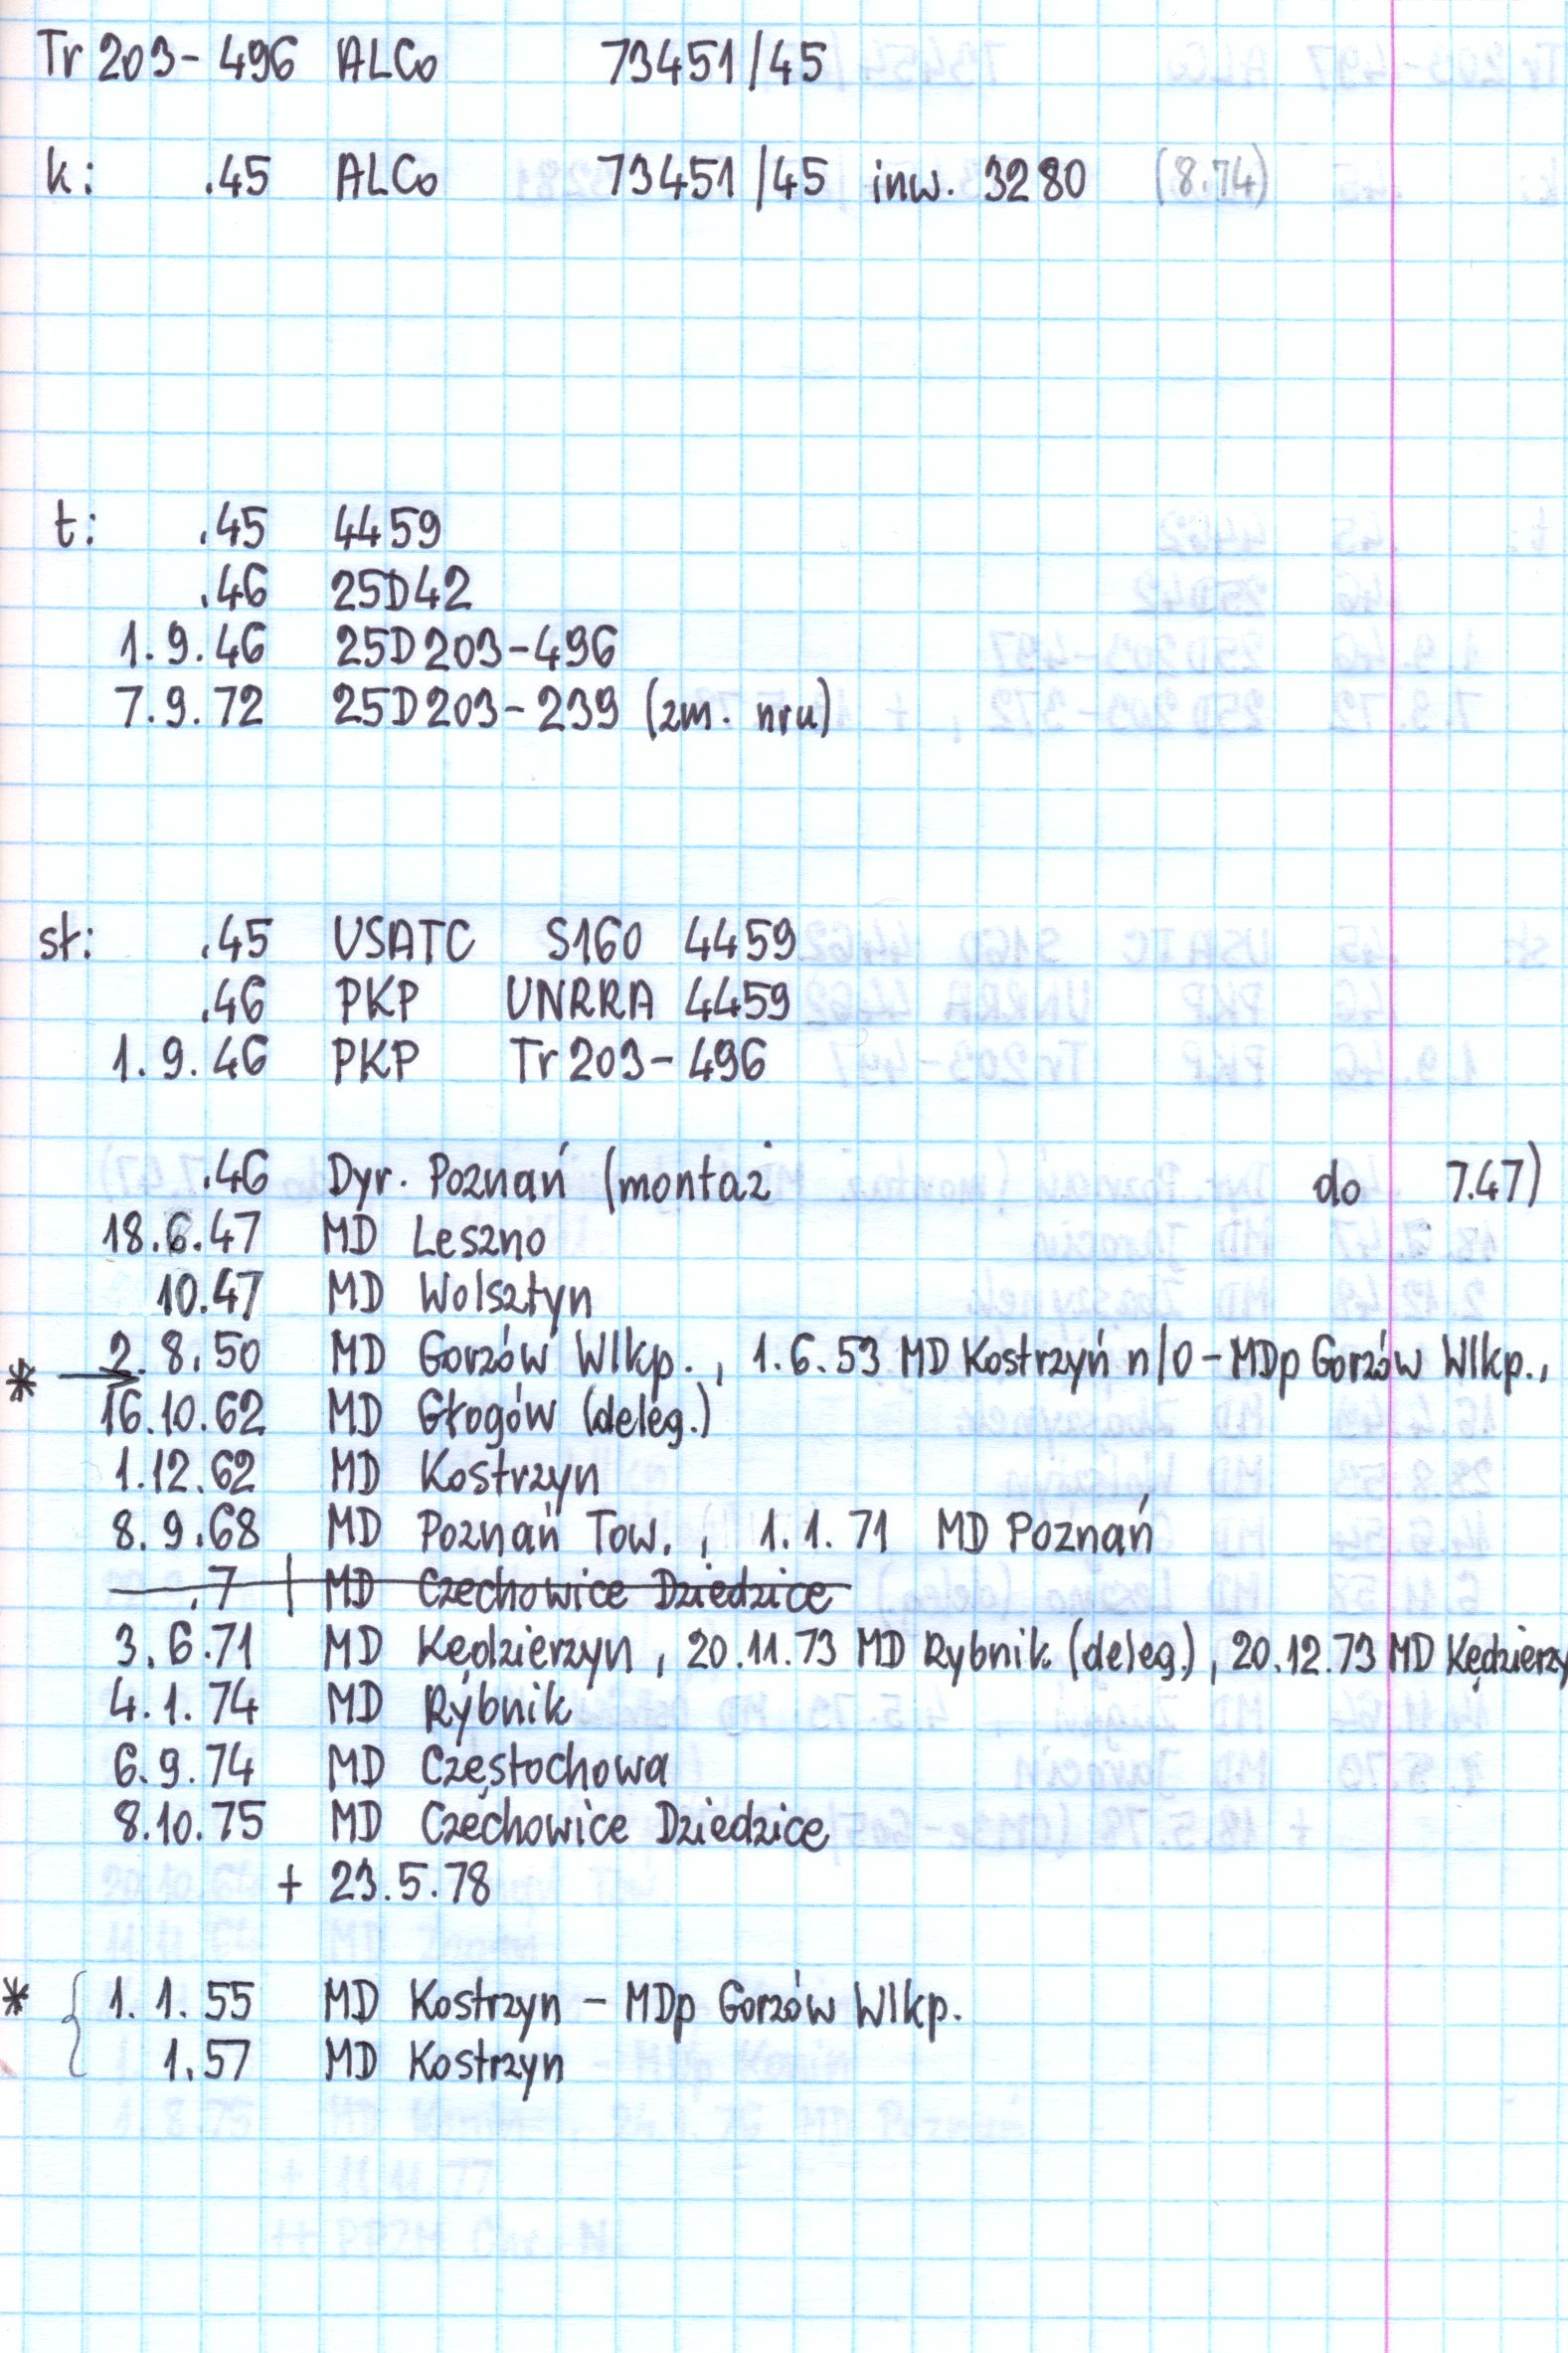 Tr 203-496 ALCo 73451/45
k: .45 ALCo 73451/45 inw. 3280 (8.74)
t: .45 4459
.46 25D42
1.9.46 25D203-496
7.9.72 25D203-239 (zm. nru)
sł: .45 USATC S160 4459
.46 PKP UNRRA 4459
1.9.46 PKP Tr 203-496
.46 Dyr. Poznań (montaż do 7.47)
18.6.47 MD Leszno
10.47 MD Wolsztyn
2.8.50 MD Gorzów Wlkp., 1.6.53 MD Kostrzyń n/O - MDp Gorzów Wlkp.,
* →
16.10.62 MD Głogów (deleg.)
1.12.62 MD Kostrzyn
8.9.68 MD Poznań Tow., 1.1.71 MD Poznań
.7 | MD Czechowice Dziedzice
3.6.71 MD Kędzierzyn, 20.11.73 MD Rybnik (deleg.), 20.12.73 MD Kędzierzy
4.1.74 MD Rybnik
6.9.74 MD Częstochowa
8.10.75 MD Czechowice Dziedzice
+ 23.5.78
* { 1.1.55 MD Kostrzyn - MDp Gorzów Wlkp.
1.57 MD Kostrzyn